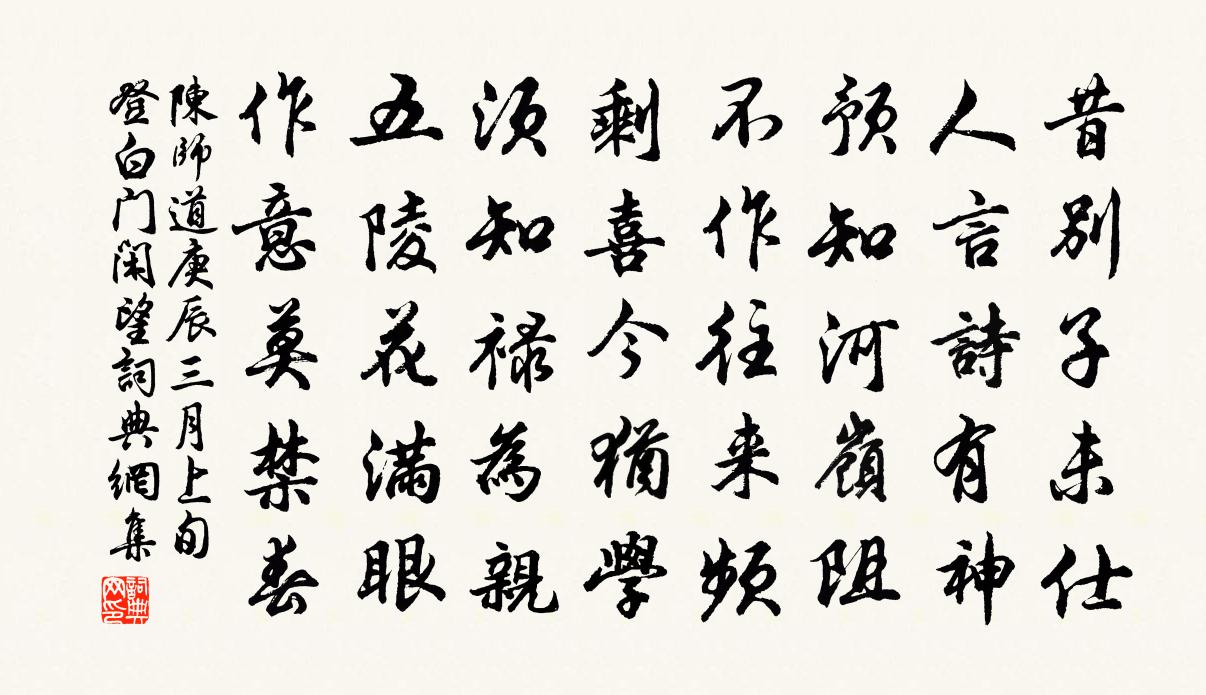 昔别子未仕
人言詩有神
預知河嶺阻
不作往来頻
剩喜今猶學
須知禄為親
五陵花滿眼
作意莫禁春
陳師道庚辰三月上旬
登白门閑望詞典網集
詞典网印